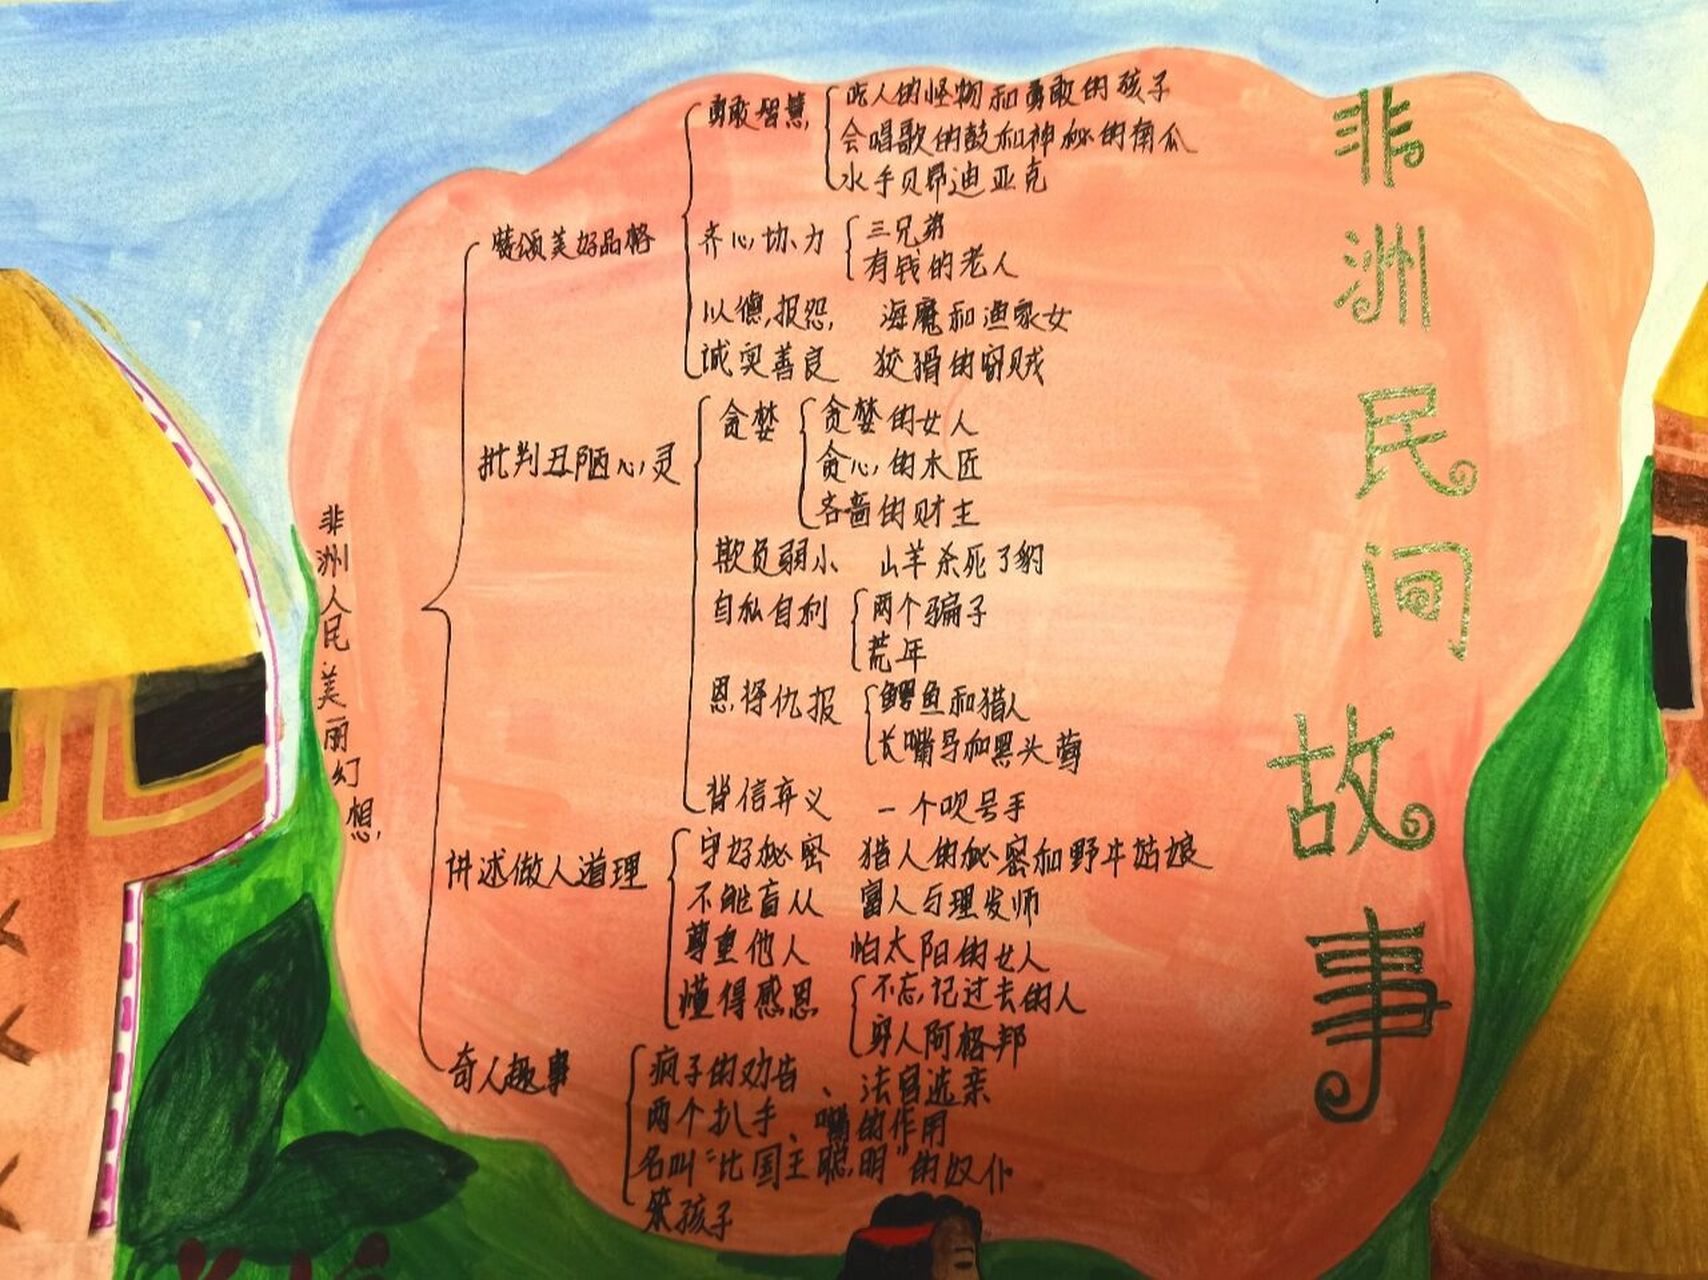 非洲民间故事
非洲人民美丽幻想
赞颂美好品格
勇敢智慧
吃人的怪物和勇敢的孩子
会唱歌的鼓和神秘的南瓜
水手贝昂迪亚克
齐心协力
三兄弟
有钱的老人
以德报怨 海魔和渔家女
诚实善良 狡猾的窃贼
批判丑陋心灵
贪婪
贪婪的女人
贪心的木匠
吝啬的财主
欺负弱小 山羊杀死了豹
自私自利
两个骗子
荒年
恩将仇报
鳄鱼和猎人
长嘴鸟和黑头莺
背信弃义 一个吹号手
讲述做人道理
守好秘密 猎人的秘密和野牛姑娘
不能盲从 富人与理发师
尊重他人 怕太阳的女人
懂得感恩
不忘记过去的人
穷人阿格邦
奇人趣事
疯子的劝告、法官选亲
两个扒手、嘴的作用
名叫“比国王聪明”的奴仆
笨孩子